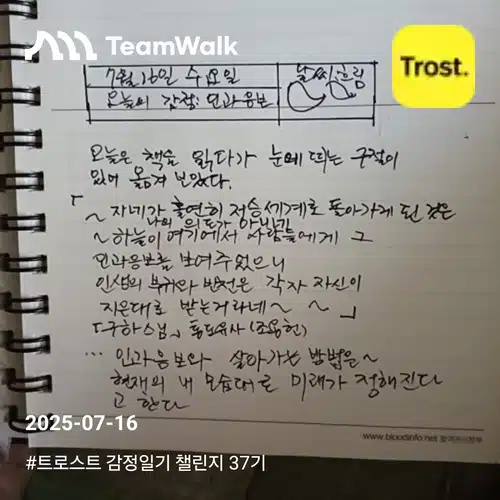 TeamWalk
Trost.
7월 16일 수요일
날씨 흐림
오늘의 감정: 인과응보
오늘은 책을 읽다가 눈에 띄는 구절이
있어 옮겨 보았다.
「~ 자네가 홀연히 저승세계로 돌아가게 된 것은
나의 의도가 아닌감
~ 하늘이 여기에서 사람들에게 그
인과응보를 보여주었으니
인생의 부귀와 빈천은 각자 자신이
지은대로 받는거라네 ~ ~ 」
「구하스님」 통도사 (조용헌)
... 인과응보와 살아가는 방법은 ~
현재의 내 모습대로 미래가 정해진다
고 한다
www.bloodinfo.net
2025-07-16
#트로스트 감정일기 챌린지 37기